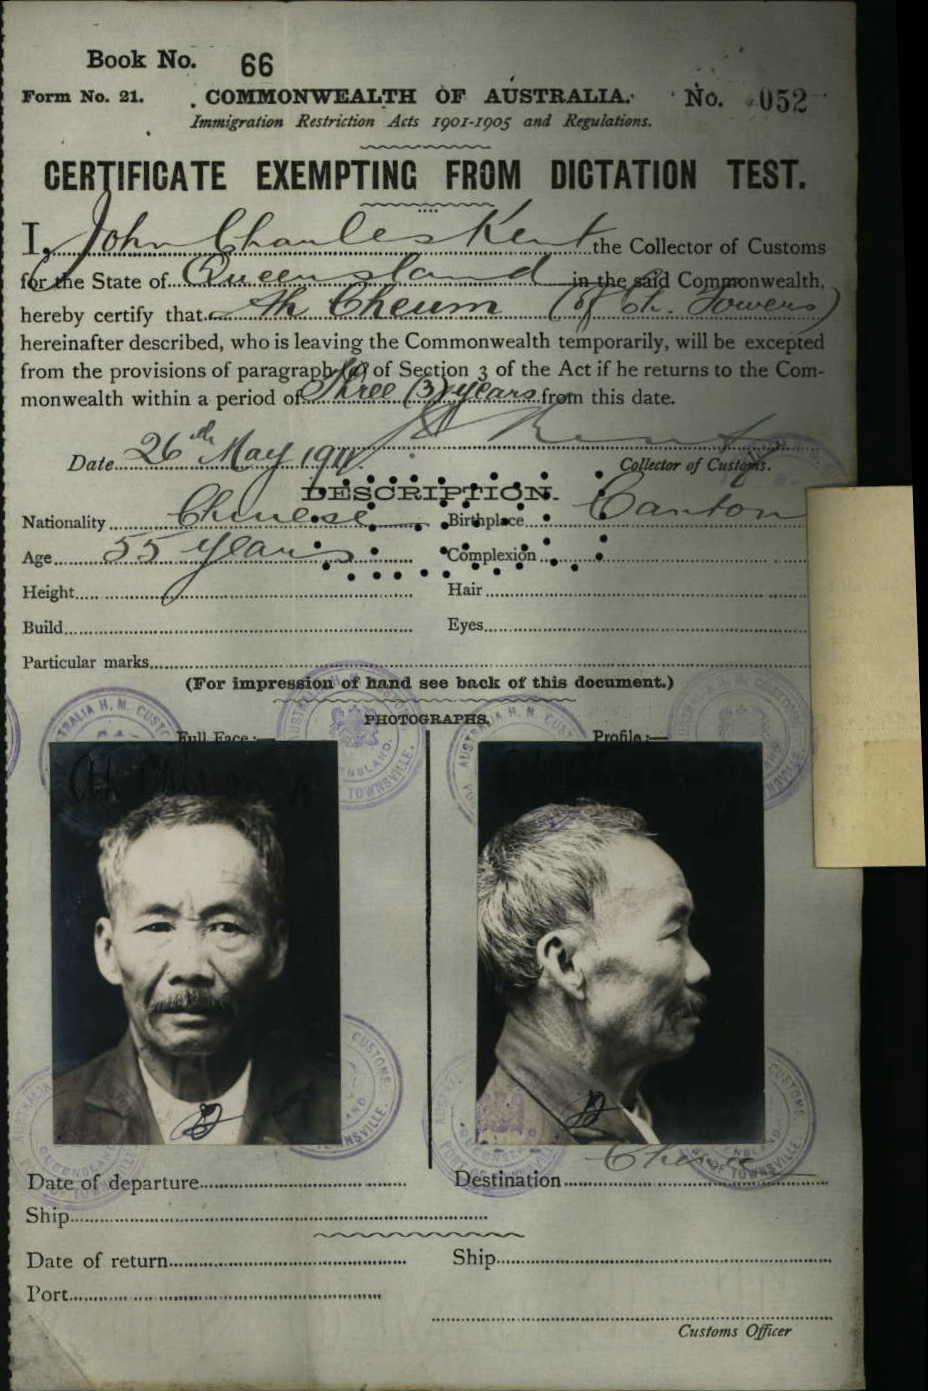 Book No. 66
Form No. 21. COMMONWEALTH OF AUSTRALIA. No. 052
Immigration Restriction Acts 1901-1905 and Regulations.
CERTIFICATE EXEMPTING FROM DICTATION TEST.
I, John Charles Kent the Collector of Customs
for the State of Queensland in the said Commonwealth,
hereby certify that Ah Cheum (of Ch. Towers)
hereinafter described, who is leaving the Commonwealth temporarily, will be excepted
from the provisions of paragraph of Section 3 of the Act if he returns to the Com-
monwealth within a period of Three (3) years from this date.
Kent
Date 26th May Collector of Customs.
DESCRIPTION.
Nationality Chinese Birthplace Canton
Age 55 years Complexion
Height Hair
Build Eyes
Particular marks
(For impression of hand see back of this document.)
PHOTOGRAPHS.
Full Face:— Profile:—
Date of departure Destination
Ship
Date of return Ship
Port
Customs Officer